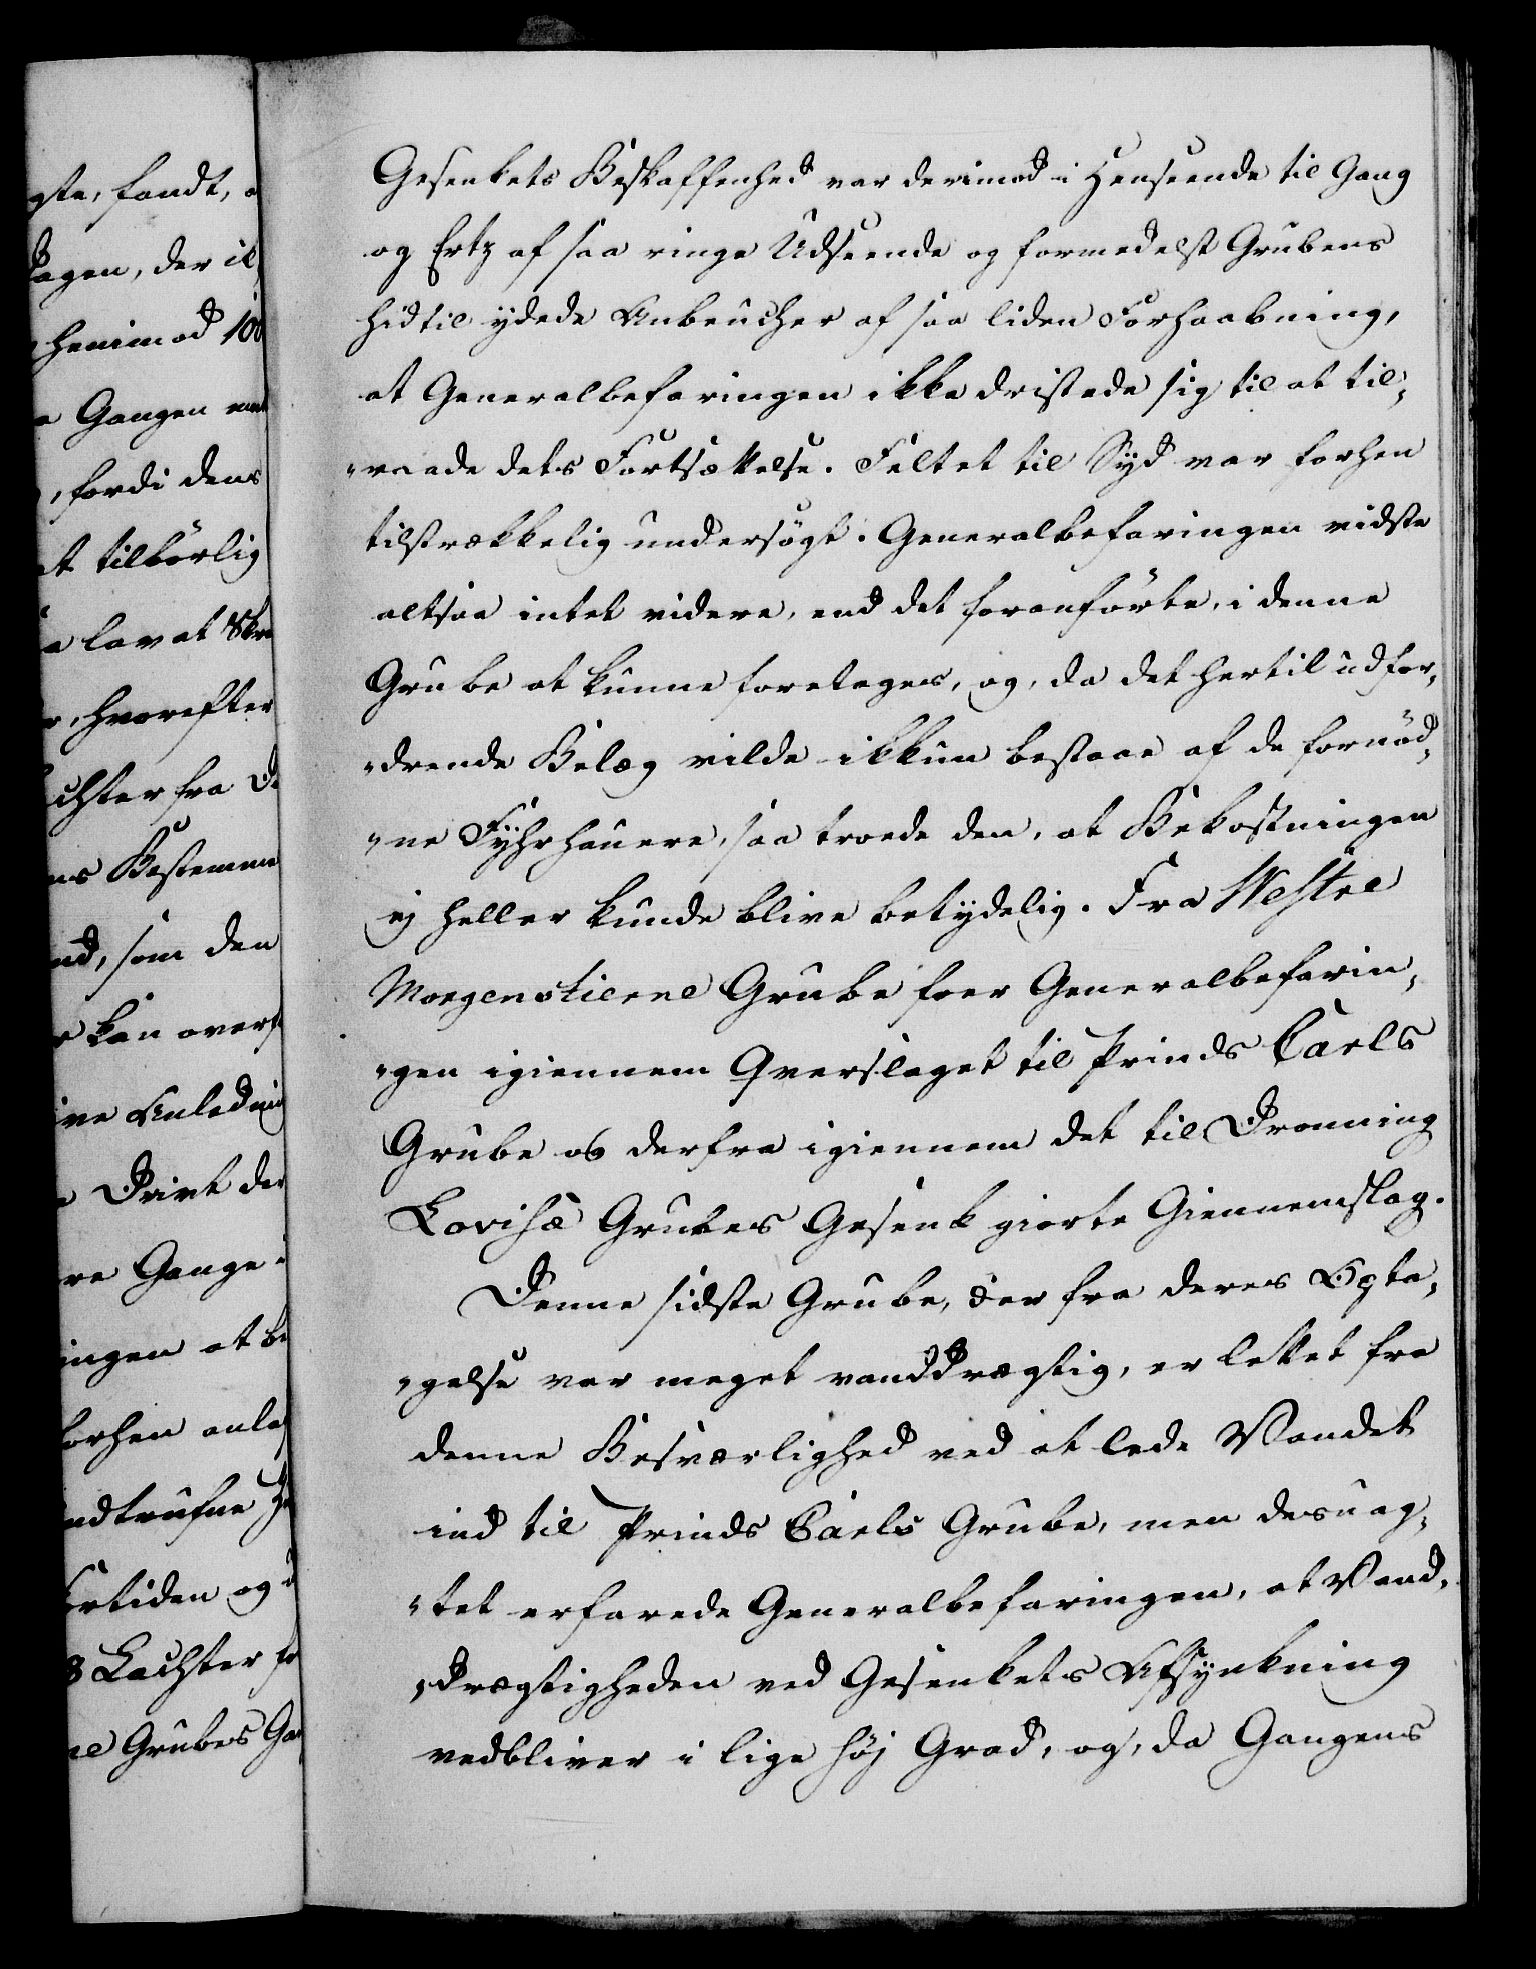 gte, fandt, a
agen, der il
henimod 100
e Gangen ma
, fordi dens
et tilbörlig
a lavat
r, hvorefter
chter fra D
ns Bestemm
nd, som den
kan overf
ive Anlednin
Drivt der
re Gange i
ingen at be
forhen anla
ndtrufne
rtiden og d
8 Lachter fr
ne Grubes Ga
Gesenkets Beskaffenhed var derimod i Henseende til Gang
og Ertz af saa ringe Udseende og formedelst Grubens
hidtil ydede Anbrücher af saa liden Forhaabning,
at Generalbefaringen ikke dristede sig til at til-
-raade dets Fortsættelse. Feltet til Syd var forhen
tilstrækkelig undersögt. Generalbefaringen vidste
altsaa intet videre, end det foranförte, i denne
Grube at kunne foretages, og, da det hertil udfor-
-drende Belæg vilde ikkun bestaae af de fornöd-
-ne Fyhrhauere, saa troede den, at Bekostningen
ej heller kunde blive betydelig. Fra Westre
Morgenstierne Grube foer Generalbefarin-
-gen igiennem Qverslaget til Prinds Carls
Grube og derfra igiennem det til Dronning
Lovisæ Grubes Gesenk giorte Giennemslag.
Denne sidste Grube, der fra deres Opta-
-gelse var meget vanddrægtig, er lettet fra
denne Besværlighed ved at lede Vandet
ind til Prinds Carls Grube, men desuag-
-tet erfarede Generalbefaringen, at Vand-
-drægtigheden ved Gesenkets Afsynkning
vedbliver i lige höj Grad, og, da Gangens